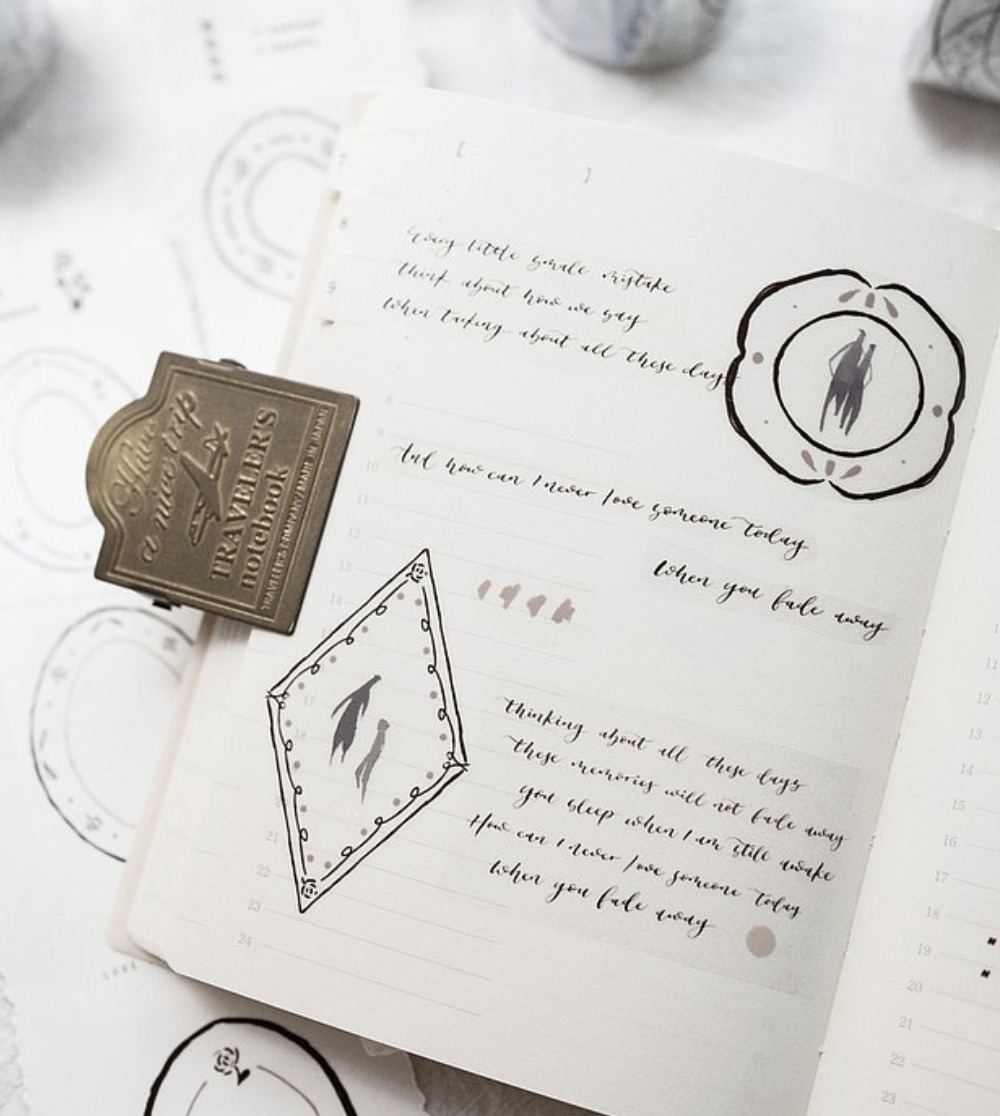 Every little smale mistake
think about how we say
When talking about all these days
And how can I never love someone today
When you fade away
thinking about all these days
these memories will not fade away
you sleep when I am still awake
How can I never love someone today
When you fade away
Have
a nice trip
TRAVELER'S
notebook
TRAVELER'S COMPANY / MADE IN JAPAN
7
8
9
10
11
12
13
14
17
18
21
22
23
24
LOVE
11
12
13
14
15
16
17
18
19
20
21
22
23